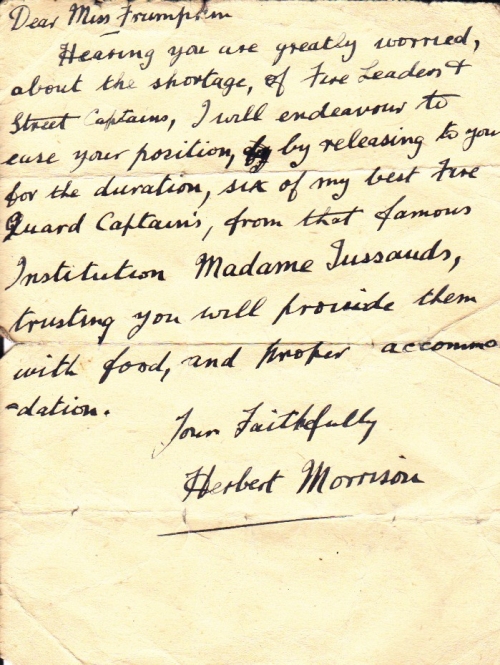 Dear Miss Frumpkin
Hearing you are greatly worried,
about the shortage, of Fire Leaders &
Street Captains, I will endeavour to
ease your position, by by releasing to you
for the duration, six of my best Fire
Guard Captain's, from that famous
Institution Madame Tussauds,
trusting you will provide them
with food, and proper accommo
-dation.
Your Faithfully
Herbert Morrison